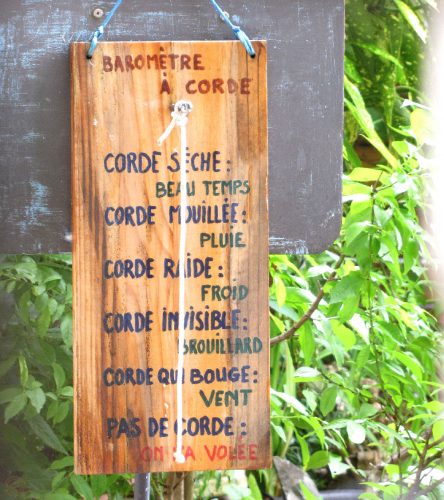 BAROMÈTRE
À CORDE
CORDE SÈCHE :
BEAU TEMPS
CORDE MOUILLÉE :
PLUIE
CORDE RAIDE :
FROID
CORDE INVISIBLE :
BROUILLARD
CORDE QUI BOUGE :
VENT
PAS DE CORDE :
ON L'A VOLÉE